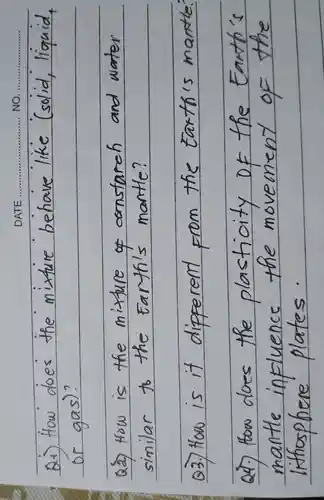 DATE .................... NO. ....................
Q1) How does the mixture behave like (solid, liquid,
or gas)?
Q2) How is the mixture of cornstarch and water
similar to the Earth's mantle?
Q3) How is it different from the Earth's mantle?
Q4) How does the plasticity of the Earth's
mantle influence the movement of the
lithosphere plates.